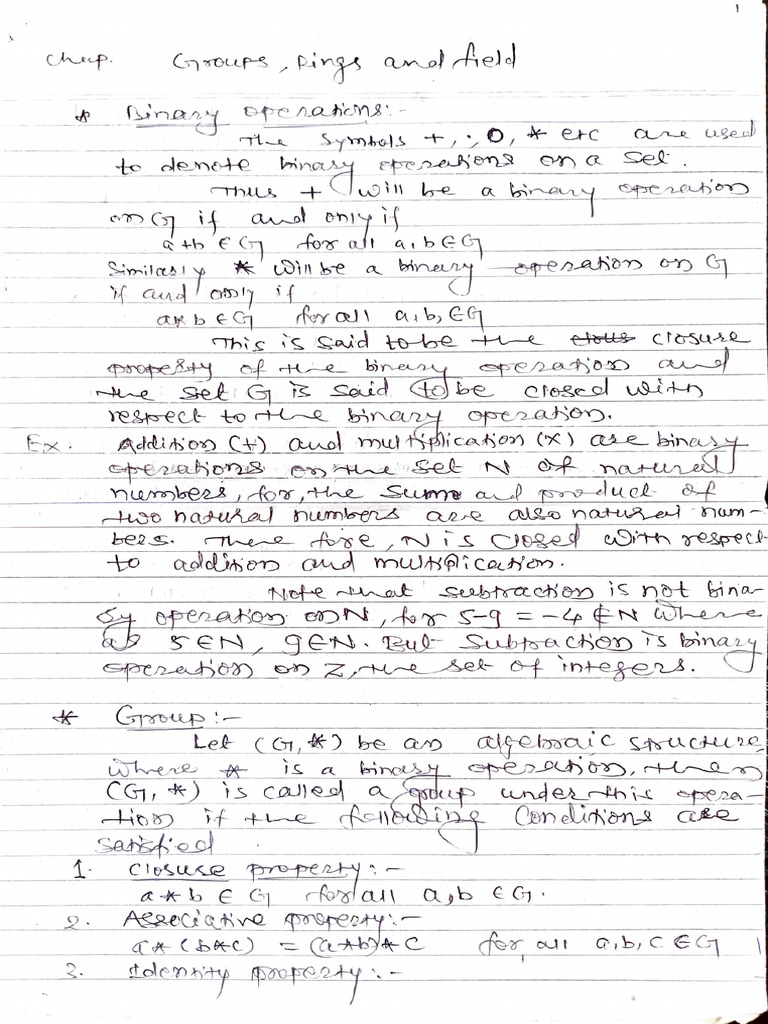 1
Chap. Groups, Rings and field
* Binary operations:-
The symbols +, ·, O, * etc are used
to denote binary operations on a set.
Thus + will be a binary operation
on G if and only if
a+b ∈ G for all a, b ∈ G
Similarly * will be a binary operation on G
if and only if
a*b ∈ G for all a, b, ∈ G
This is said to be the closure
property of the binary operation and
the set G is said to be closed with
respect to the binary operation.
Ex. Addition (+) and multiplication (×) are binary
operations on the set N of natural
numbers, for, the sum and product of
two natural numbers are also natural num-
bers. Therefore, N is closed with respect
to addition and multiplication.
Note that subtraction is not bina-
ry operation on N, for 5-9 = -4 ∉ N where
as 5 ∈ N, 9 ∈ N. But subtraction is binary
operation on Z, the set of integers.
* Group:-
Let (G, *) be an algebraic structure,
where * is a binary operation, then
(G, *) is called a group under this opera-
tion if the following conditions are
satisfied
1. Closure property:-
a*b ∈ G for all a, b ∈ G.
2. Associative property:-
a*(b*c) = (a*b)*c for all a, b, c ∈ G
3. Identity property:-